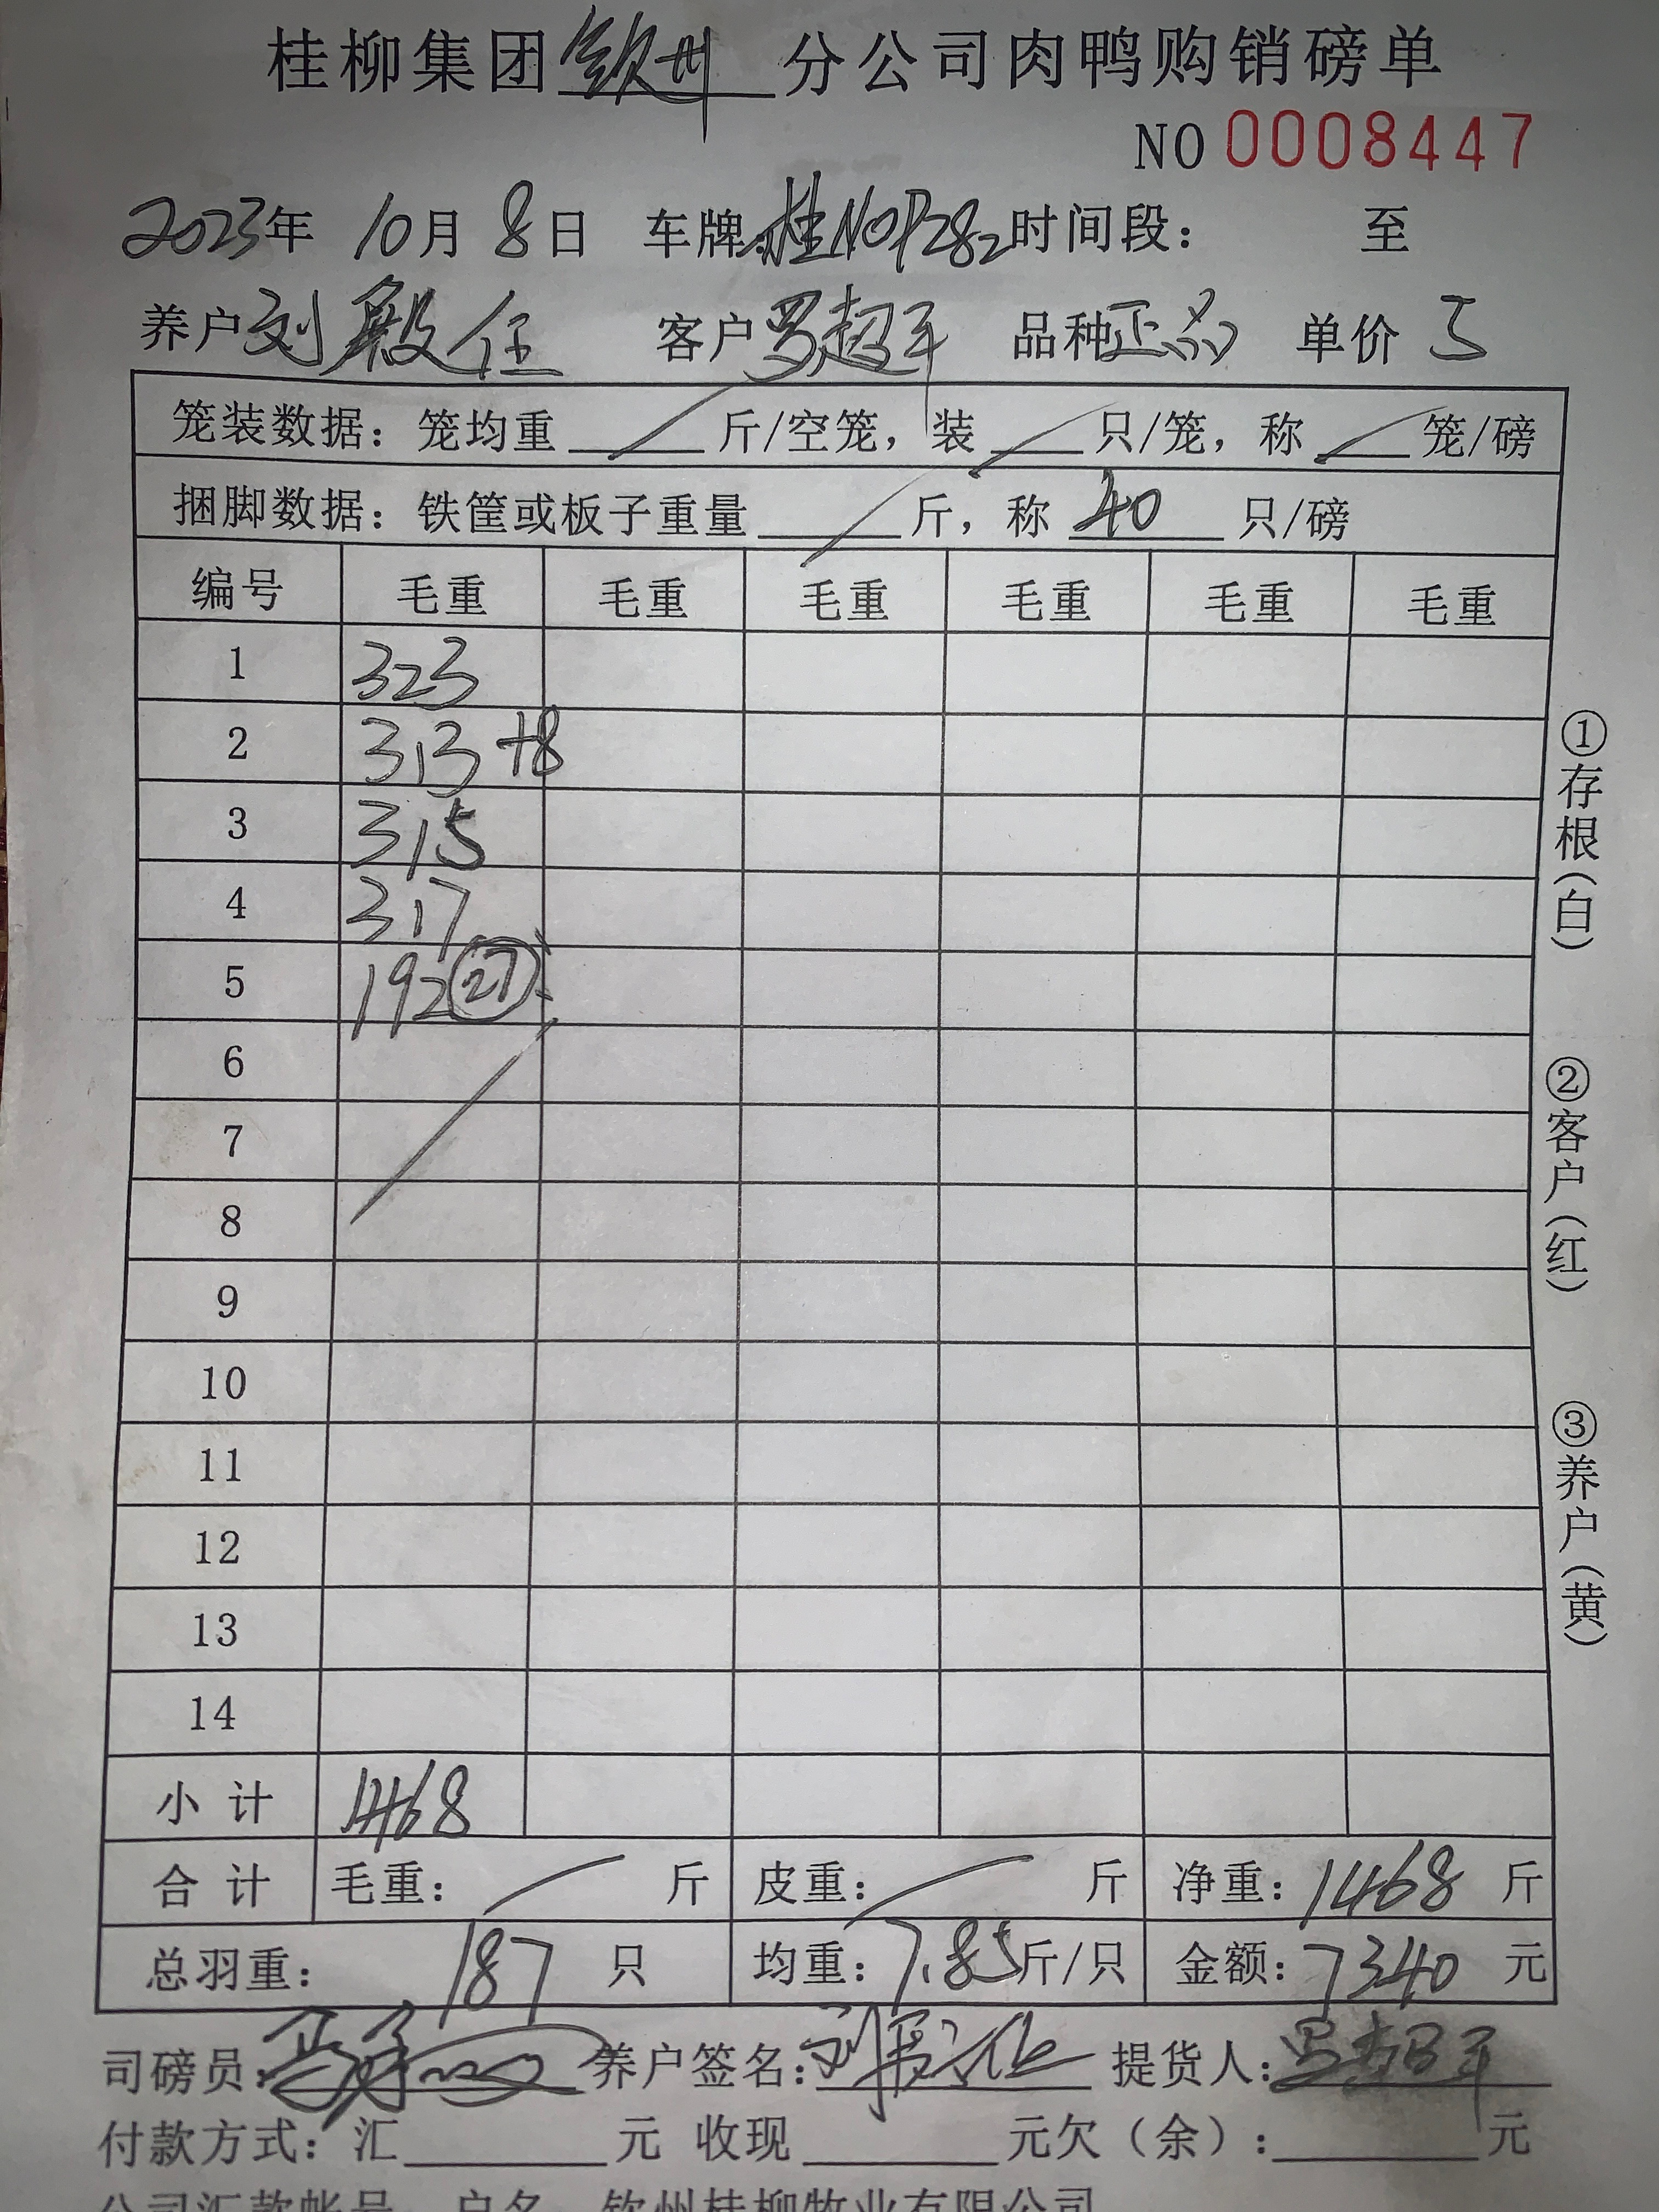 桂柳集团钦州分公司肉鸭购销磅单
NO 0008447
2023年 10月 8日 车牌:桂N0P282 时间段: 至
养户 刘殿任 客户 罗超平 品种 正品 单价 5
笼装数据:笼均重 / 斤/空笼,装 / 只/笼,称 / 笼/磅
捆脚数据:铁筐或板子重量 / 斤,称 40 只/磅
编号 毛重 毛重 毛重 毛重 毛重 毛重
1 323
2 313 +8
3 315
4 317
5 192 (27)
6
7
8
9
10
11
12
13
14
小计 1468
合计 毛重: / 斤 皮重: / 斤 净重:1468 斤
总羽重: 187 只 均重:7.85斤/只 金额:7340 元
司磅员: 养户签名: 提货人:罗超平
付款方式:汇 元 收现 元欠(余): 元
公司汇款帐号 户名 钦州桂柳牧业有限公司
①存根(白)
②客户(红)
③养户(黄)